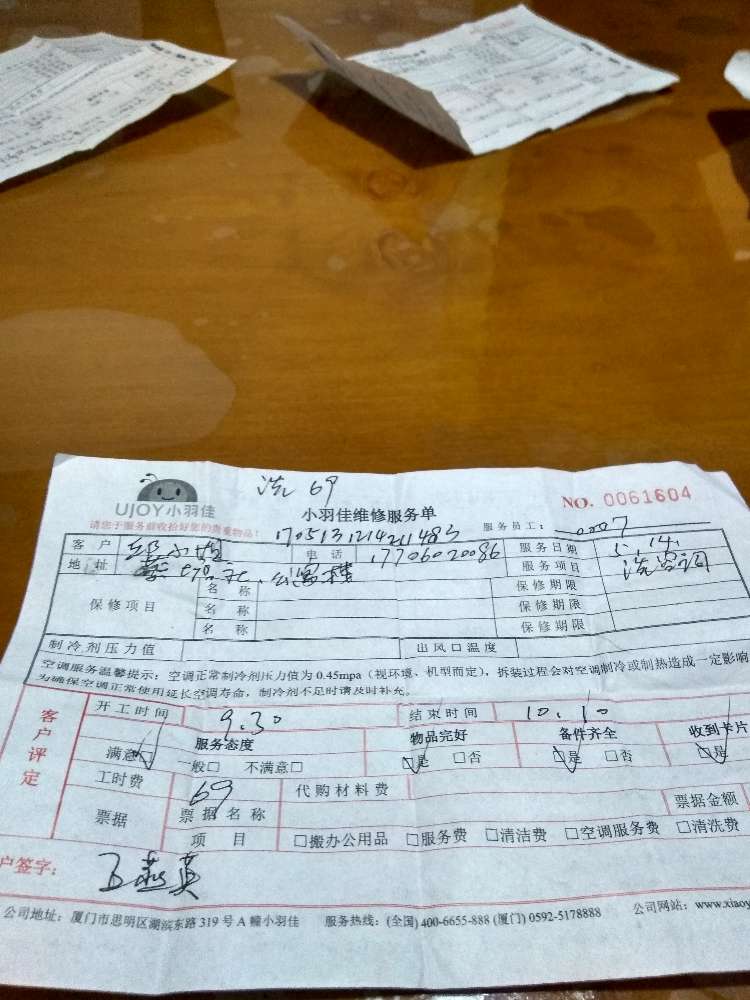 洗 69
NO. 0061604
UJOY小羽佳
小羽佳维修服务单
请您于服务前收拾好您的贵重物品!
服务员工: 0007
客户 小姐 电话 17706020086 服务日期 5.14
地址 公寓楼 服务项目 洗空调
保修项目 名称 保修期限
名称 保修期限
名称 保修期限
制冷剂压力值 出风口温度
空调服务温馨提示:空调正常制冷剂压力值为 0.45mpa(视环境、机型而定),拆装过程会对空调制冷或制热造成一定影响
为确保空调正常使用延长空调寿命,制冷剂不足时请及时补充。
客户评定
开工时间 9.30 结束时间 10.10
服务态度 物品完好 备件齐全 收到卡片
满意□ 一般□ 不满意□ □是 □否 □是 □否 □是
工时费 69 代购材料费
票据 票据名称 票据金额
项目 □搬办公用品 □服务费 □清洁费 □空调服务费 □清洗费
户签字: 王燕英
公司地址:厦门市思明区湖滨东路 319 号 A 幢小羽佳 服务热线:(全国) 400-6655-888 (厦门) 0592-5178888 公司网站:www.xiaoy